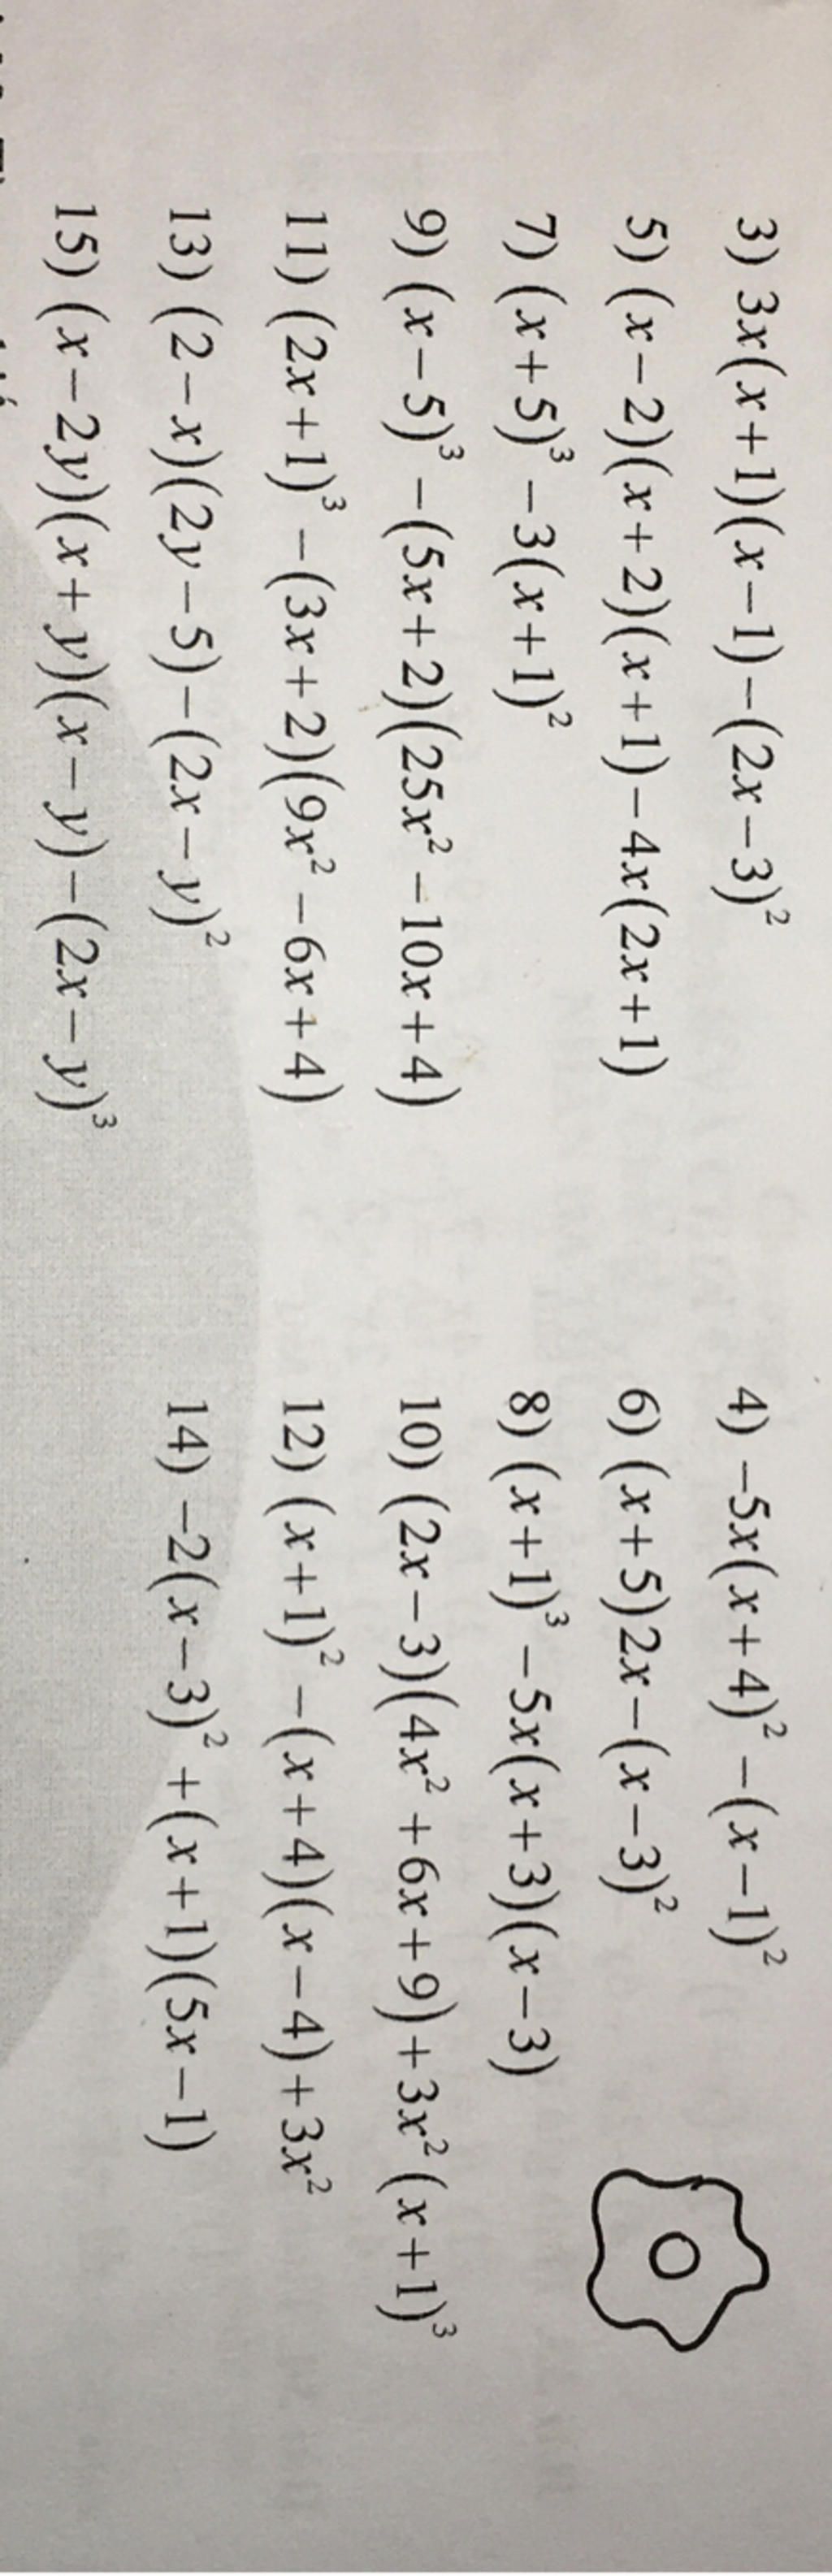 3) 3x(x+1)(x−1)−(2x−3)²
4) −5x(x+4)²−(x−1)²
5) (x−2)(x+2)(x+1)−4x(2x+1)
6) (x+5)2x−(x−3)²
7) (x+5)³−3(x+1)²
8) (x+1)³−5x(x+3)(x−3)
9) (x−5)³−(5x+2)(25x²−10x+4)
10) (2x−3)(4x²+6x+9)+3x²(x+1)³
11) (2x+1)³−(3x+2)(9x²−6x+4)
12) (x+1)²−(x+4)(x−4)+3x²
13) (2−x)(2y−5)−(2x−y)²
14) −2(x−3)²+(x+1)(5x−1)
15) (x−2y)(x+y)(x−y)−(2x−y)³